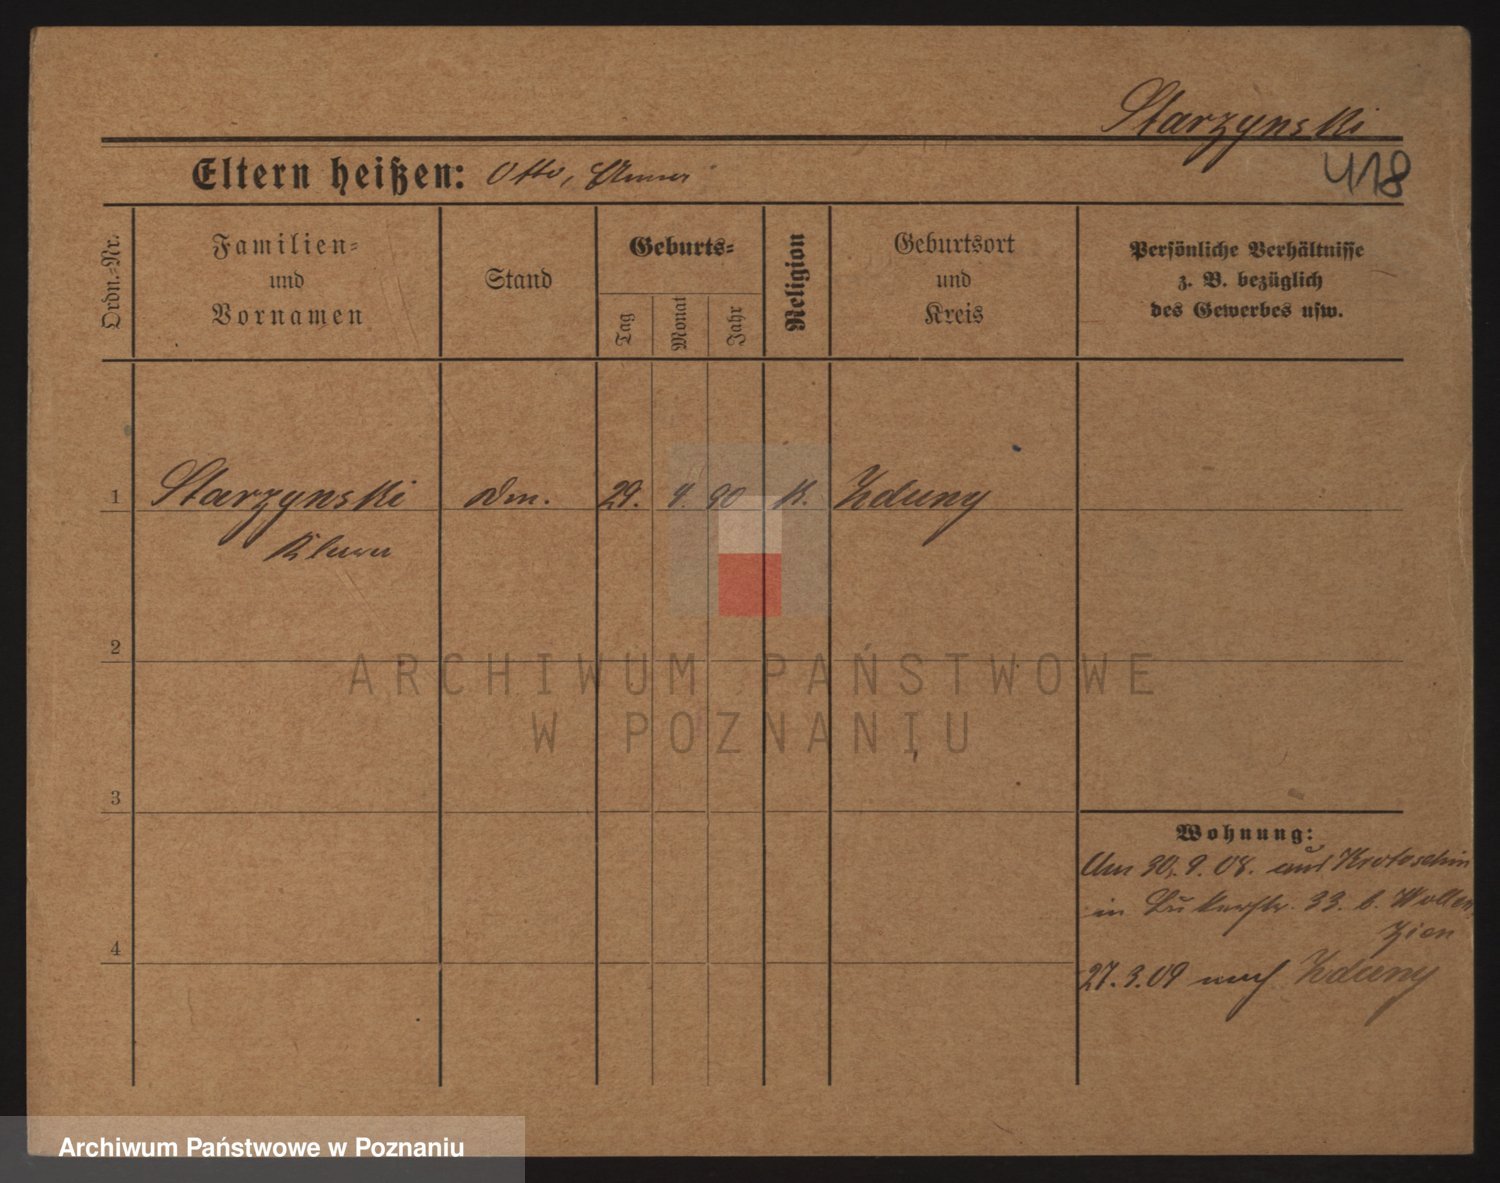 Starzynski
418
Eltern heißen: Otto, Anna
Ordn.=Nr.
Familien=
und
Vornamen
Stand
Geburts=
Tag
Monat
Jahr
Religion
Geburtsort
und
Kreis
Persönliche Verhältnisse
z. B. bezüglich
des Gewerbes usw.
1
Starzynski
29. 4. 90
K.
Zduny
Klara
2
3
4
Wohnung:
Am 30. 9. 08. aus Krotoschin
in 33. b. Wollen
27.3.09 nach Zduny
ARCHIWUM PAŃSTWOWE
W POZNANIU
Archiwum Państwowe w Poznaniu